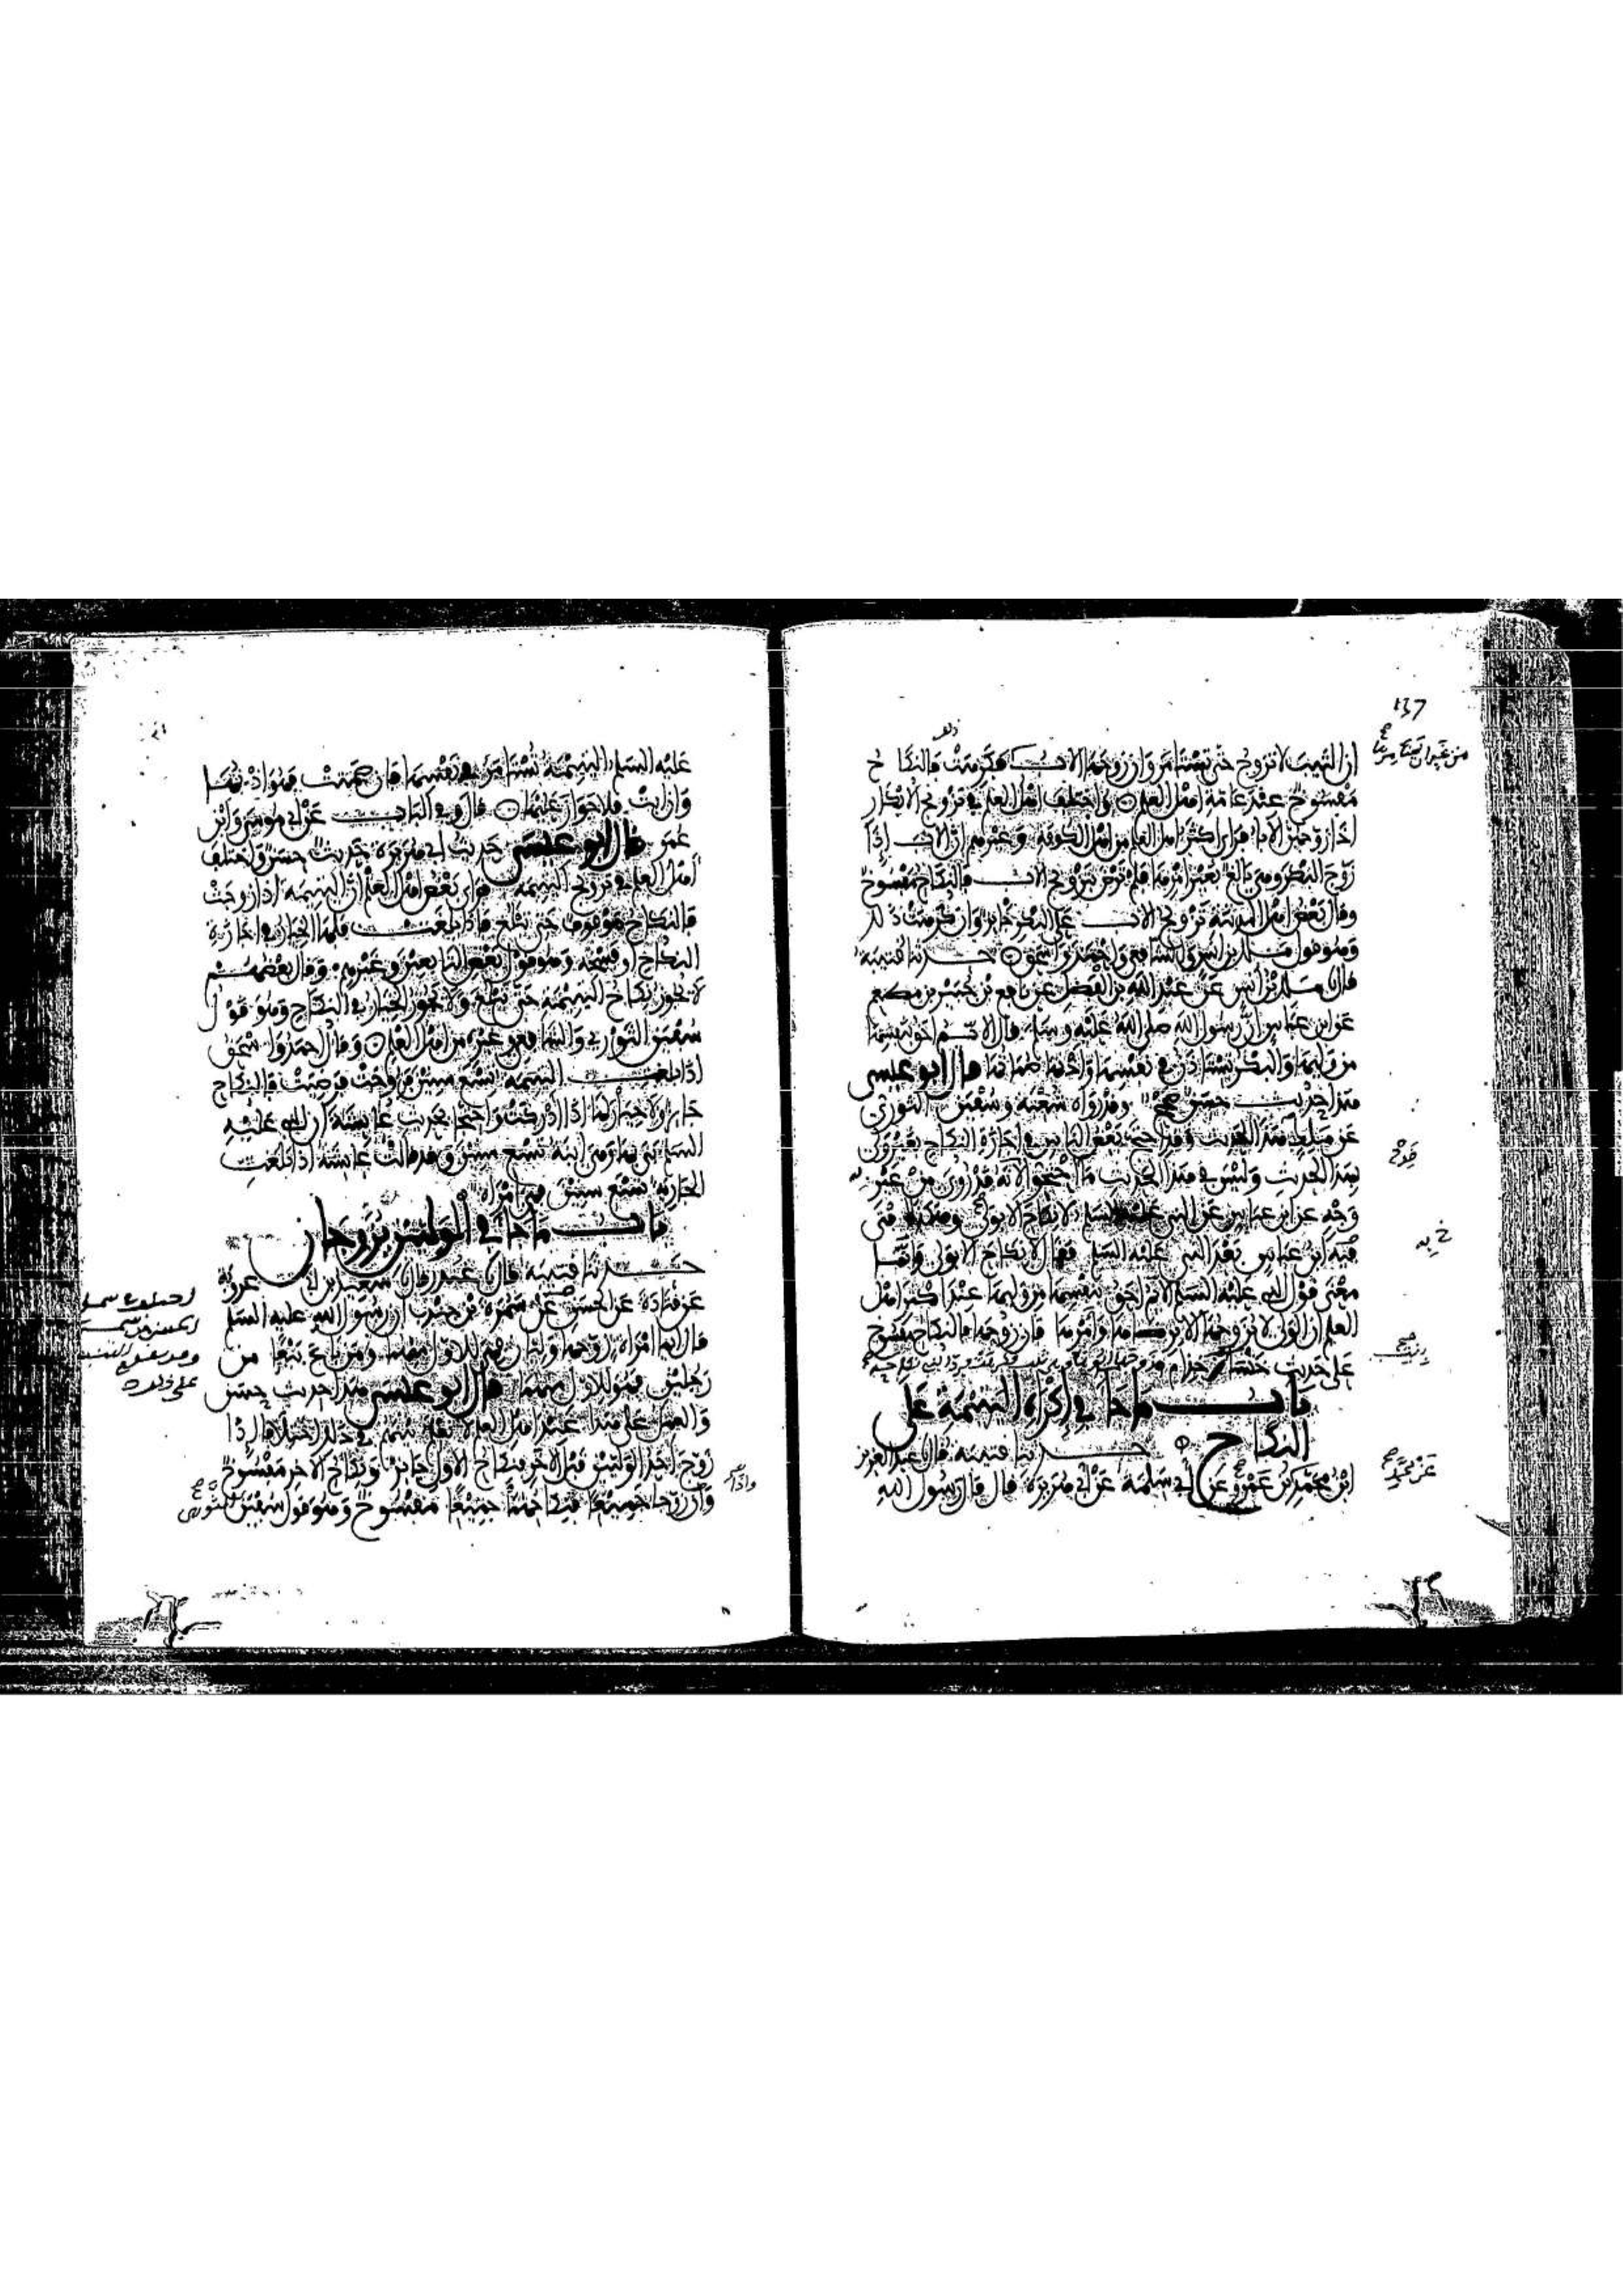 137
ان الثيب لا تزوج حتى تستامر وان زوجها الاب فكرهت فالنكاح
ذلك
من غير ان يستامرها صح
مفسوخ عند عامة اهل العلم واختلف اهل العلم في تزويج الابكار
اذا زوجهن الابا فراى اكثر اهل العلم من اهل الكوفة وغيرهم ان الاب اذا
زوج البكر وهي بالغ بغير امرها فلم ترض بتزويج الاب فالنكاح مفسوخ
وقال بعض اهل المدينة تزويج الاب على البكر جائز وان كرهت ذلك
وهو قول ملك بن انس والشافعي واحمد واسحق حدثنا قتيبة
قال ملك بن انس عن عبد الله بن الفضل عن نافع بن جبير بن مطعم
عن ابن عباس ان رسول الله صلى الله عليه وسلم قال الايم احق بنفسها
من وليها والبكر تستاذن في نفسها واذنها صماتها قال ابو عيسى
هذا حديث حسن صحيح وقد رواه شعبة وسفين الثوري
عن ملك هذا الحديث وقد احتج بعض الناس في اجازة النكاح بغير ولي
بهذا الحديث وليس في هذا الحديث ما احتجوا لانه قد روي من غير
وجه عن ابن عباس عن النبي عليه السلم لا نكاح الا بولي وهكذا افتى
خ به
فيه ابن عباس بعد النبي عليه السلم فقال لا نكاح الا بولي وانما
معنى قول النبي عليه السلم الايم احق بنفسها من وليها عند اكثر اهل
العلم ان الولي لا يزوجها الا برضاها وامرها فان زوجها فالنكاح مفسوخ
على حديث خنساء بنت خدام
باب ما جا في اكراه اليتيمة على
النكاح حدثنا قتيبة قال عبد العزيز
ابن محمد عن عمرو عن ابي سلمة عن ابي هريرة قال قال رسول الله
عليه السلم اليتيمة تستامر في نفسها فان صمتت فهو اذنها
وان ابت فلا جواز عليها قال وفي الباب عن ابي موسى وابن
عمر قال ابو عيسى حديث ابي هريرة حديث حسن واختلف
اهل العلم في تزويج اليتيمة فراى بعض اهل العلم ان اليتيمة اذا زوجت
فالنكاح موقوف حتى تبلغ فاذا بلغت فلها الخيار في اجازة
النكاح او فسخه وهو قول بعض التابعين وغيرهم وقال بعضهم
لا يجوز نكاح اليتيمة حتى تبلغ ولا يجوز الخيار في النكاح وهو قول
سفين الثوري والشافعي وغيره من اهل العلم وقال احمد واسحق
اذا بلغت اليتيمة تسع سنين فزوجت فرضيت فالنكاح
جائز ولا خيار لها اذا ادركت واحتجا بحديث عائشة ان النبي عليه
السلم بنى بها وهي ابنة تسع سنين وقد قالت عائشة اذا بلغت
الجارية تسع سنين فهي امراة
باب ما جا في الوليين يزوجان
حدثنا قتيبة قال غندر قال سعيد بن ابي عروبة
عن قتادة عن الحسن عن سمرة بن جندب ان رسول الله عليه السلم
قال ايما امراة زوجها وليان فهي للاول منهما ومن باع بيعا من
رجلين فهو للاول منهما قال ابو عيسى هذا حديث حسن
والعمل على هذا عند اهل العلم لا نعلم بينهم في ذلك اختلافا اذا
زوج احد الوليين قبل الاخر فنكاح الاول جائز ونكاح الاخر مفسوخ
واذا صح
وان زوجا جميعا فنكاحهما جميعا مفسوخ وهو قول سفين الثوري صح